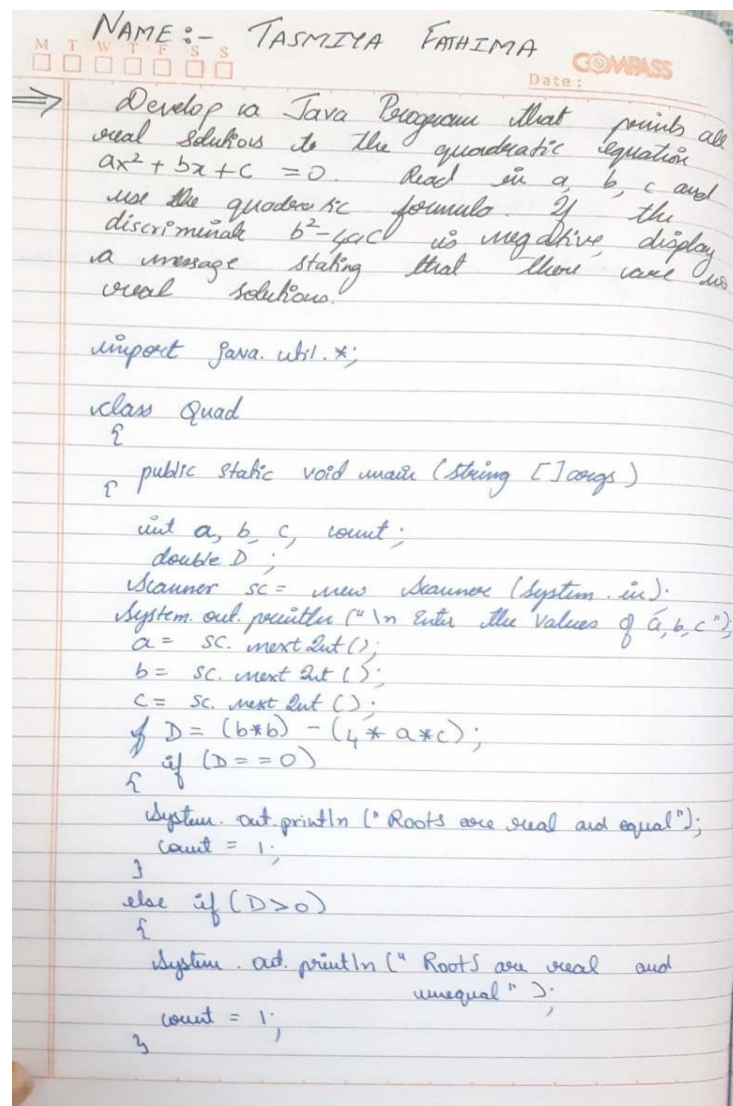 NAME :- TASMIYA FATHIMA
M T W T F S S
COMPASS
Date :
⇒ Develop a Java Program that prints all
real solutions to the quadratic equation
ax² + bx + c = 0. Read in a, b, c and
use the quadratic formula. If the
discriminate b²-4ac is negative, display
a message stating that there are no
real solutions.
import java.util.*;
class Quad
{
public static void main (String [] args)
{
int a, b, c, count;
double D;
Scanner sc = new Scanner (System.in).
System.out.println ("\n Enter the values of a,b,c");
a = sc.nextInt();
b = sc.nextInt();
c = sc.nextInt();
D = (b*b) - (4*a*c);
if (D==0)
{
System.out.println ("Roots are real and equal");
count = 1;
}
else if (D>0)
{
System.out.println (" Roots are real and
unequal");
count = 1;
}